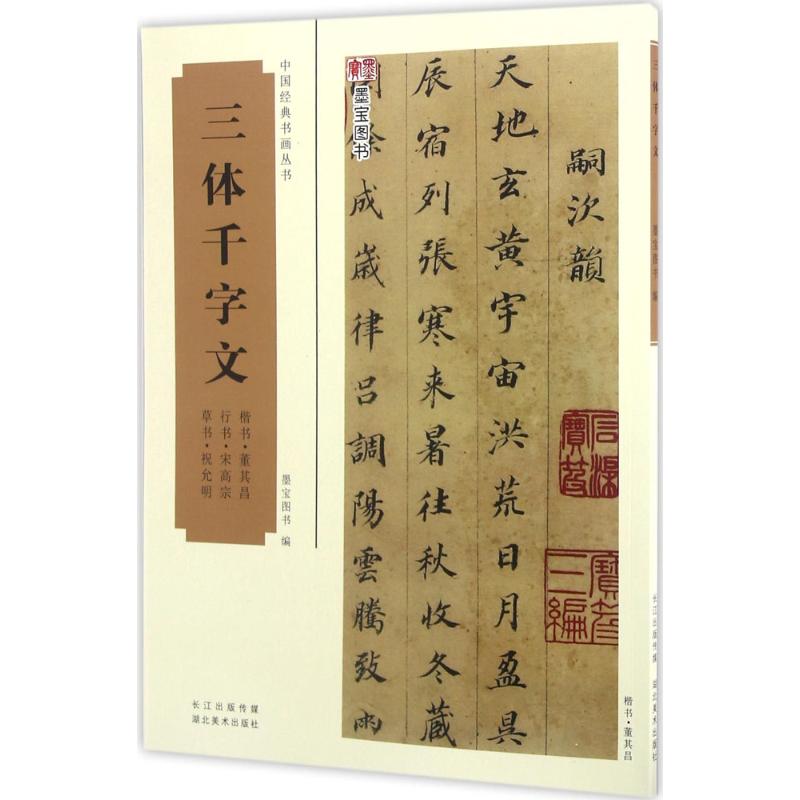 中国经典书画丛书
三体千字文
楷书·董其昌
行书·宋高宗
草书·祝允明
墨宝图书 编
长江出版传媒
湖北美术出版社
墨寶
墨宝图书
嗣次韻
天地玄黄宇宙洪荒日月盈昃
辰宿列張寒来暑往秋收冬藏
閏餘成歲律呂調陽雲騰致雨
石渠寶笈
寶笈三編
楷书·董其昌
三体千字文
墨宝图书 编
长江出版传媒
湖北美术出版社